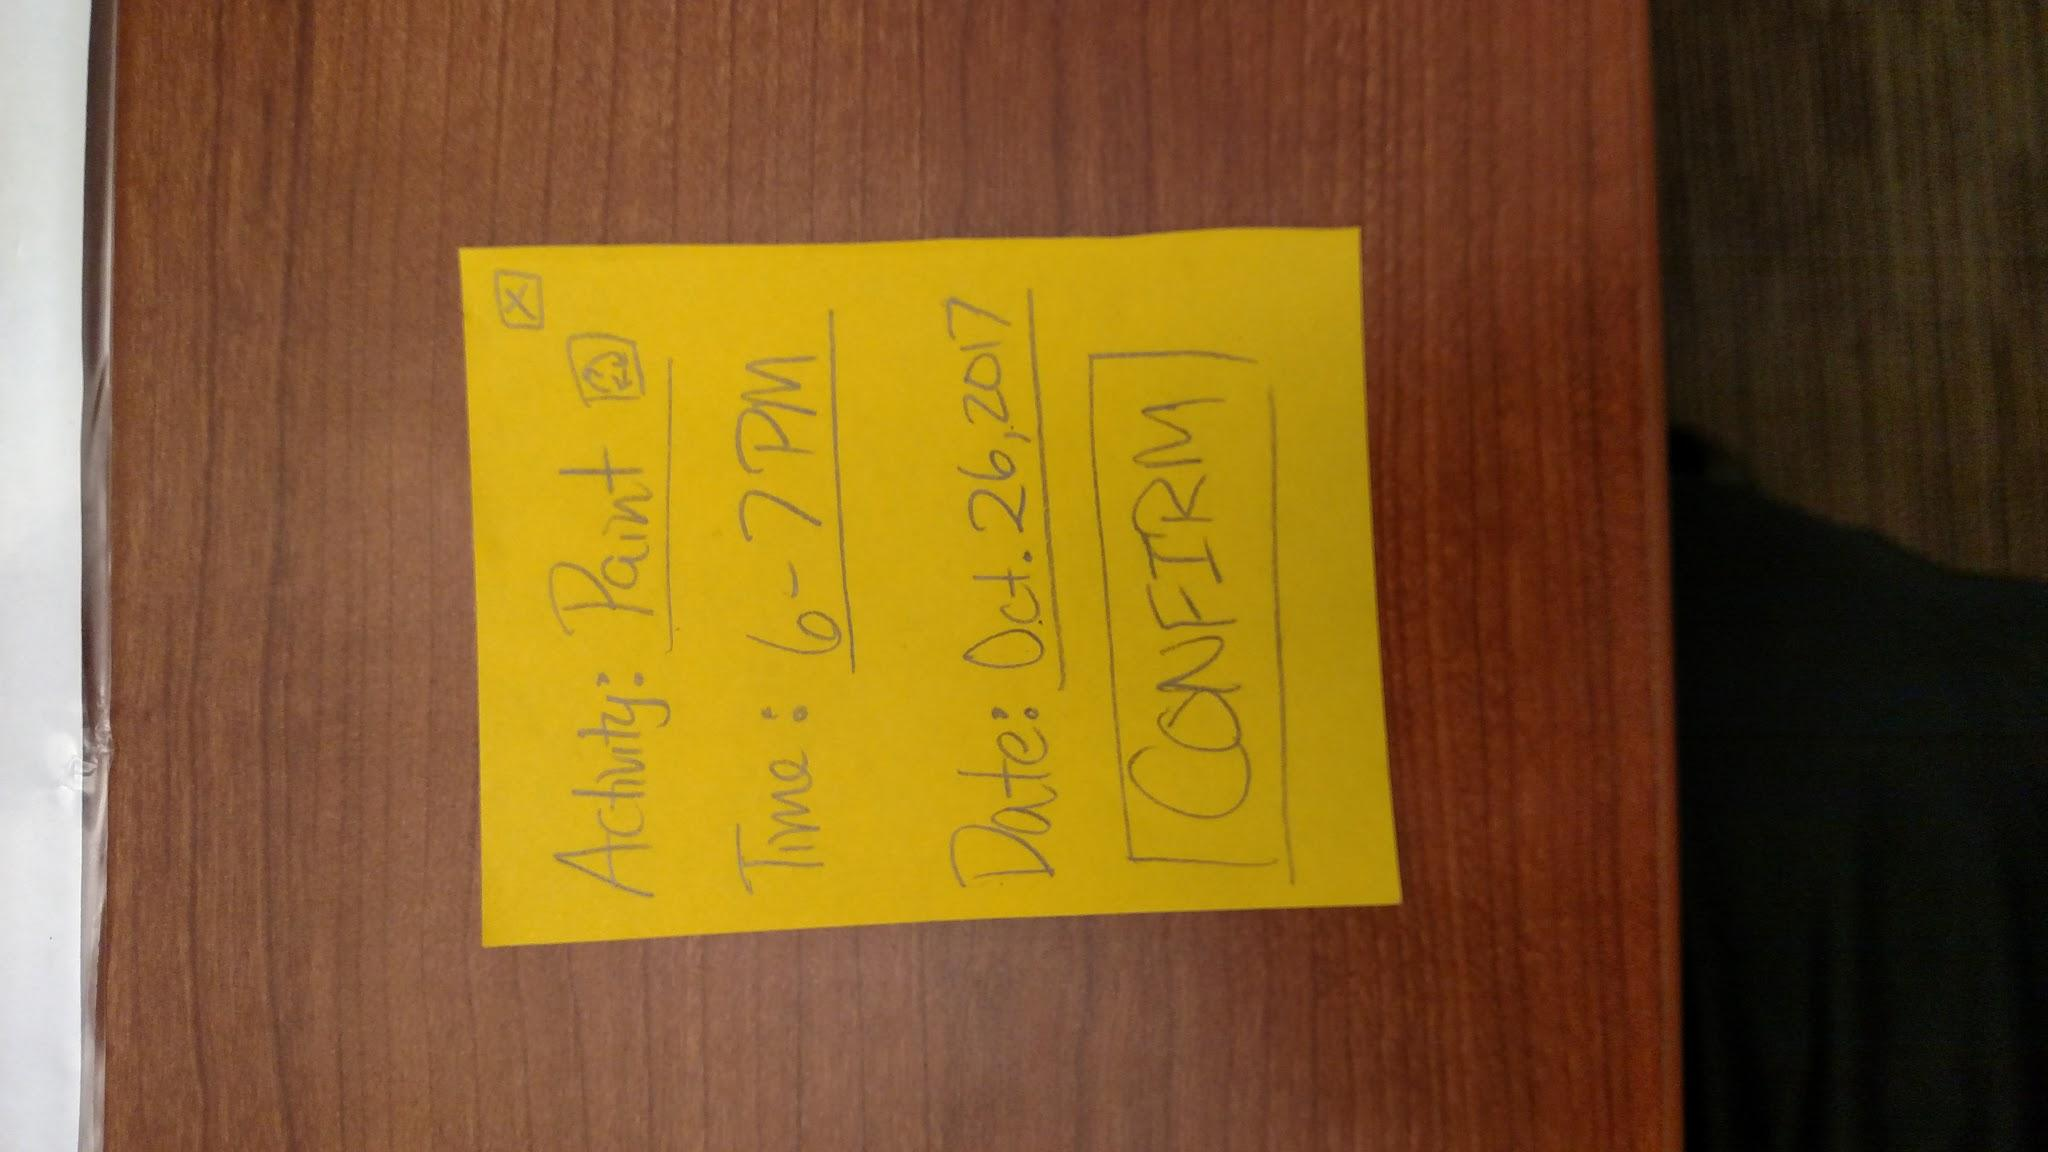 X
Activity: Paint
Time: 6-7 PM
Date: Oct. 26, 2017
CONFIRM